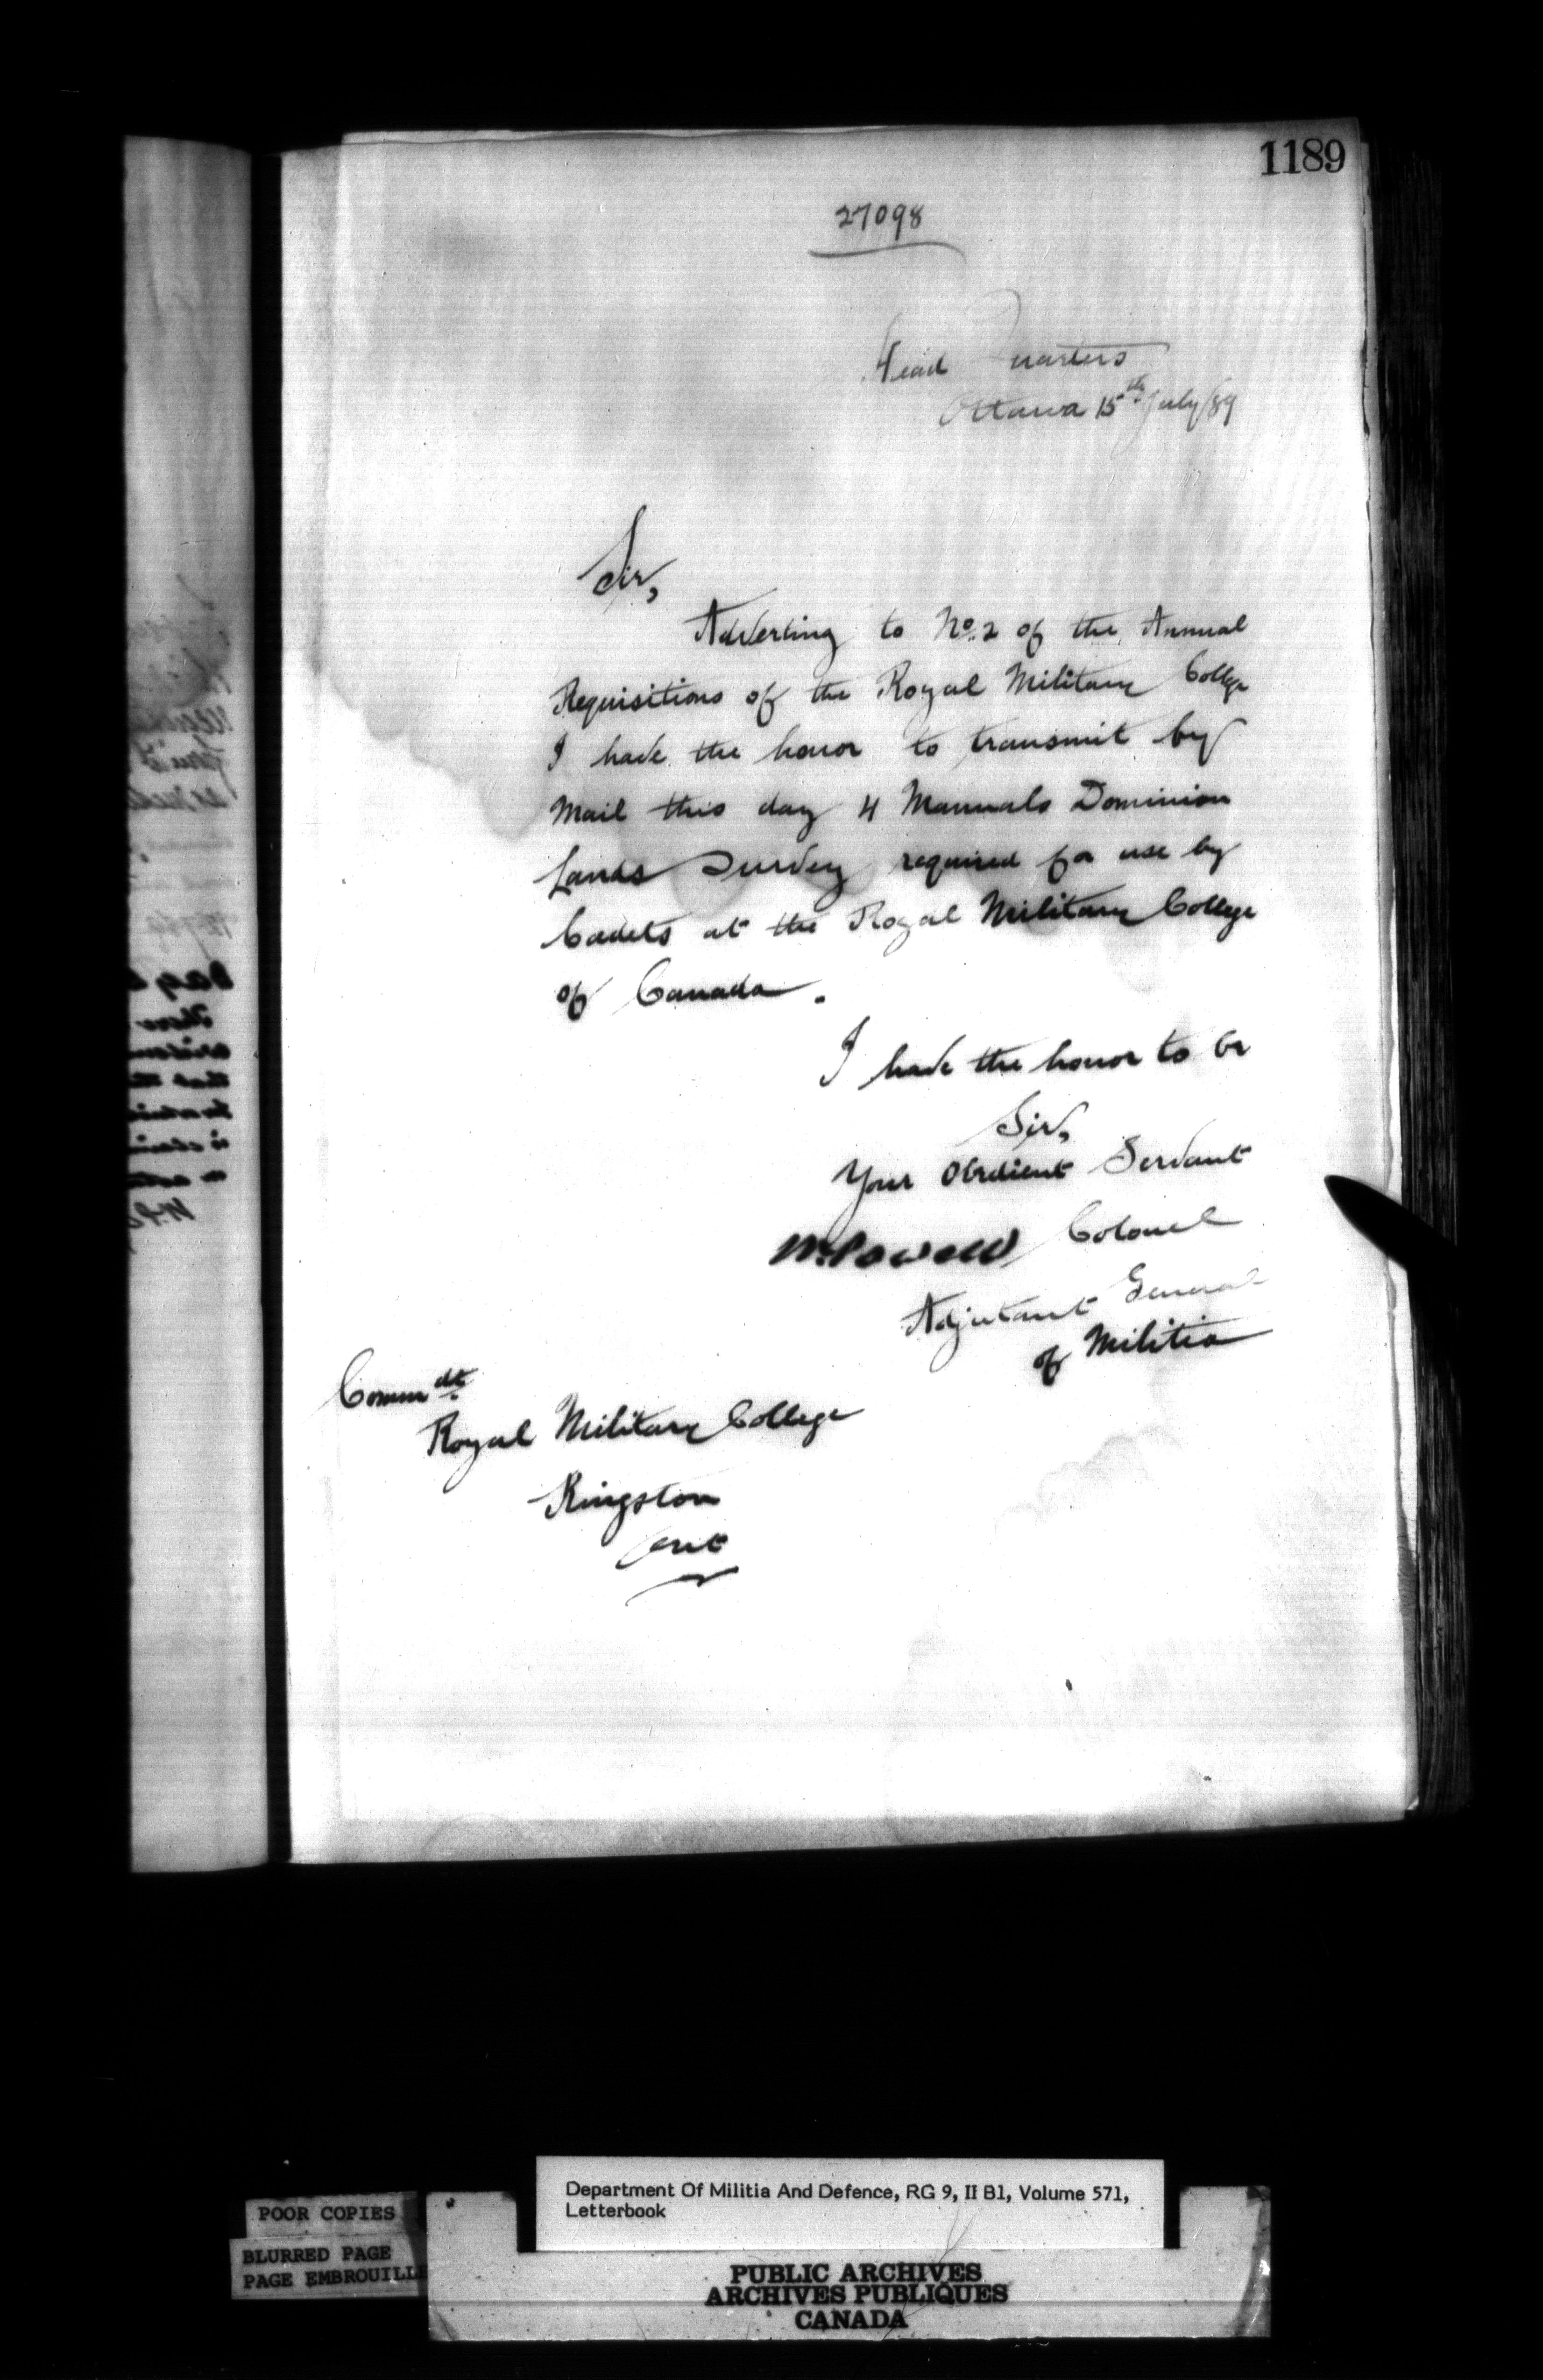 1189
27098
Head Quarters
Ottawa 15th July/89
Sir,
Adverting to No. 2 of the Annual
Requisitions of the Royal Military College
I have the honor to transmit by
Mail this day 4 Manuals Dominion
Lands Survey required for use by
Cadets at the Royal Military College
of Canada.
I have the honor to be
Sir,
Your Obedient Servant
W. Powell Colonel
Adjutant General
of Militia
Commdt.
Royal Military College
Kingston
Ont
Department Of Militia And Defence, RG 9, II B1, Volume 571,
Letterbook
POOR COPIES
BLURRED PAGE
PAGE EMBROUILLE
PUBLIC ARCHIVES
ARCHIVES PUBLIQUES
CANADA